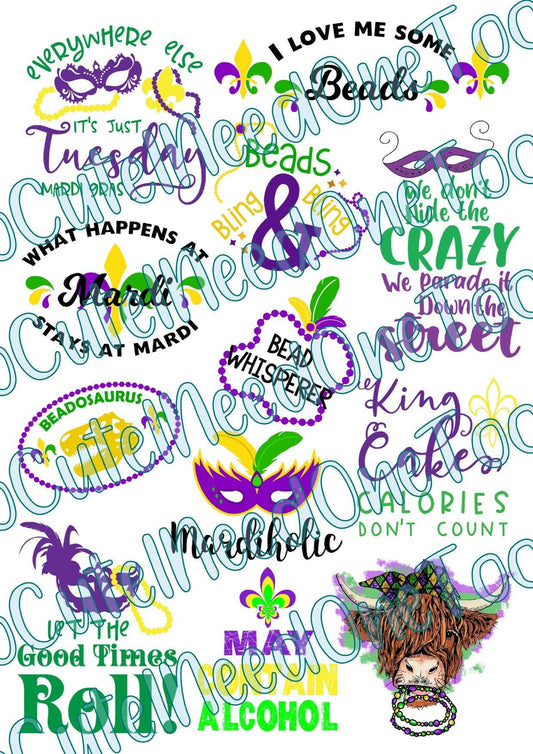 EVERYWHERE ELSE
IT'S JUST
Tuesday
MARDI GRAS
I LOVE ME SOME
Beads
BEADS
Bling & Bling
We don't
Hide the
CRAZY
We Parade it
Down the
street
WHAT HAPPENS AT
Mardi
STAYS AT MARDI
BEAD
WHISPERER
BEADOSAURUS
King
Cake
CALORIES
DON'T COUNT
Mardiholic
LET THE
Good Times
Roll!
MAY
CONTAIN
ALCOHOL
SoCuteINeedOneToo